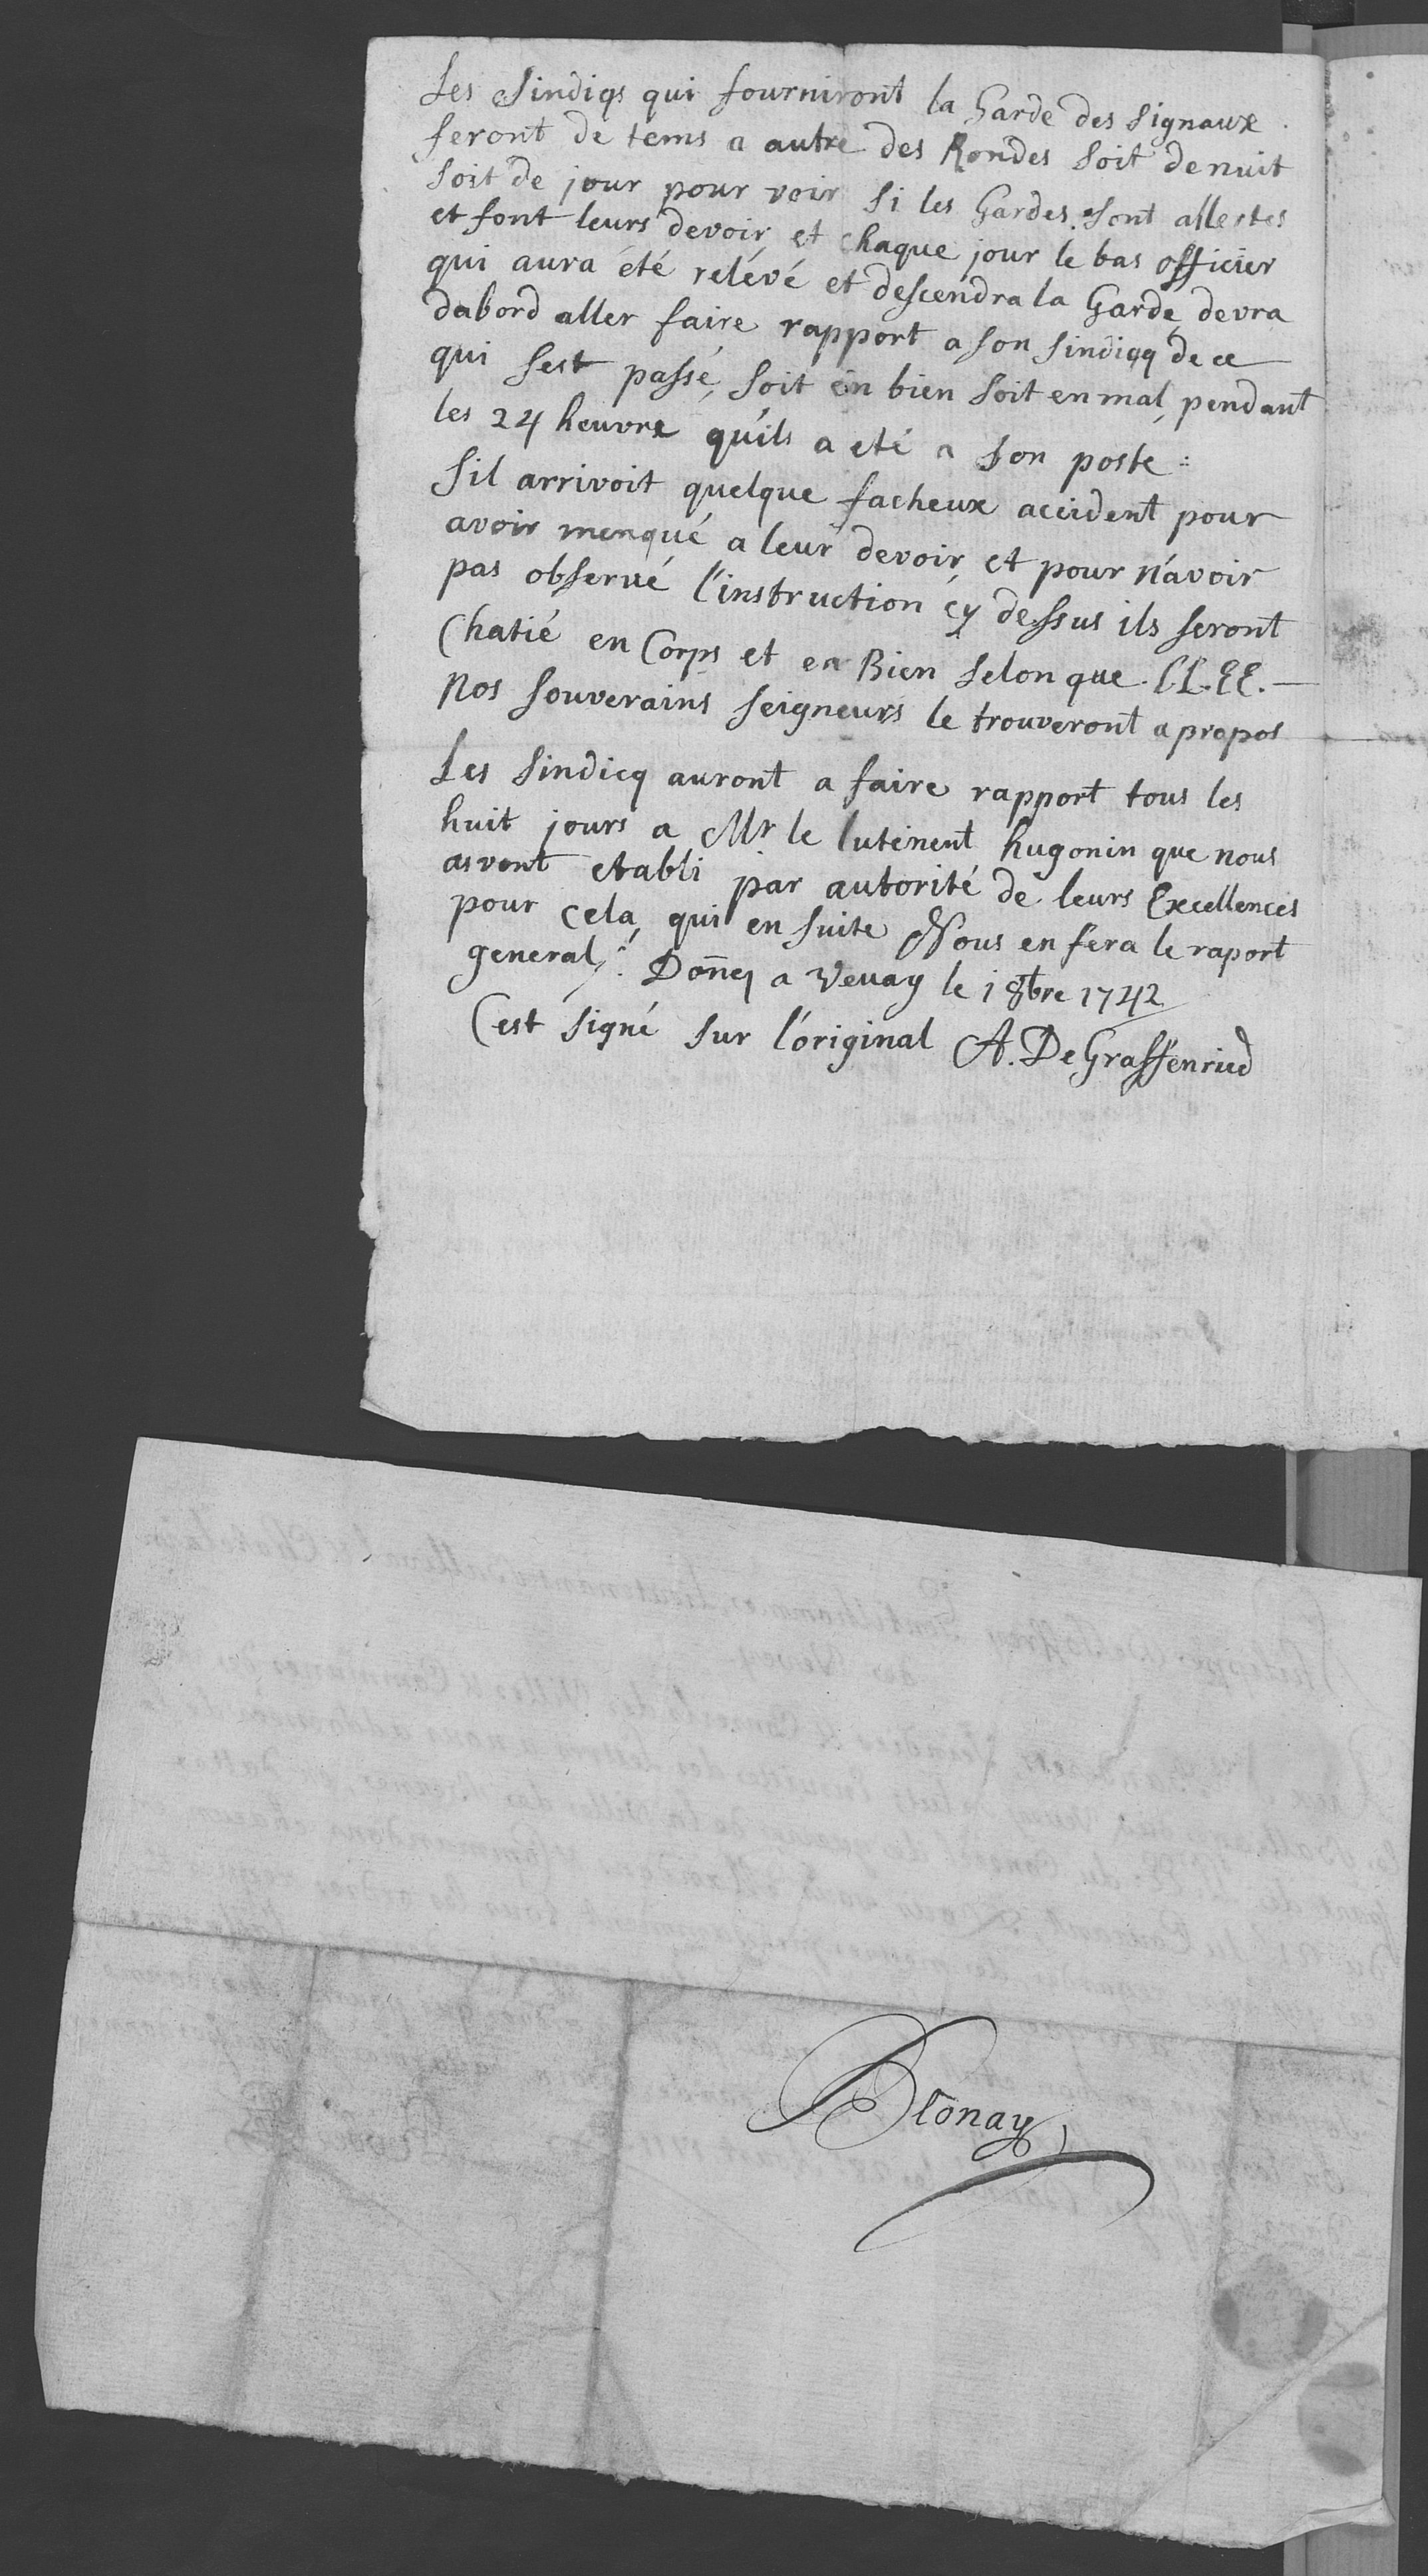 Les Sindiqs qui fourniront la Garde des Signaux
feront de tems a autre des Rondes Soit de nuit
Soit de jour pour voir Si les Gardes Sont allertes
et font leurs devoir, et chaque jour le bas officier
qui aura été relévé et descendra la Garde devra
dabord aller faire rapport a son Sindicq de ce
qui Sest passé, Soit en bien Soit en mal, pendant
les 24 heuvre qu'ils a eté a Son poste :
Sil arrivoit quelque facheux accident pour
avoir menqué a leur devoir et pour n'avoir
pas observé l'instruction cy dessus ils seront
Chatié en Corps et en Bien Selon que LL.EE.
Nos Souverains Seigneurs le trouveront a propos
Les Sindicq auront a faire rapport tous les
huit jours a Mr le lutenent hugonin que nous
avont etabli par autorité de leurs Excellences
pour cela, qui en suite Nous en fera le raport
general. Donné a Vevay le 1 8bre 1742
C'est Signé Sur l'original A. De Graffenried
Blonay